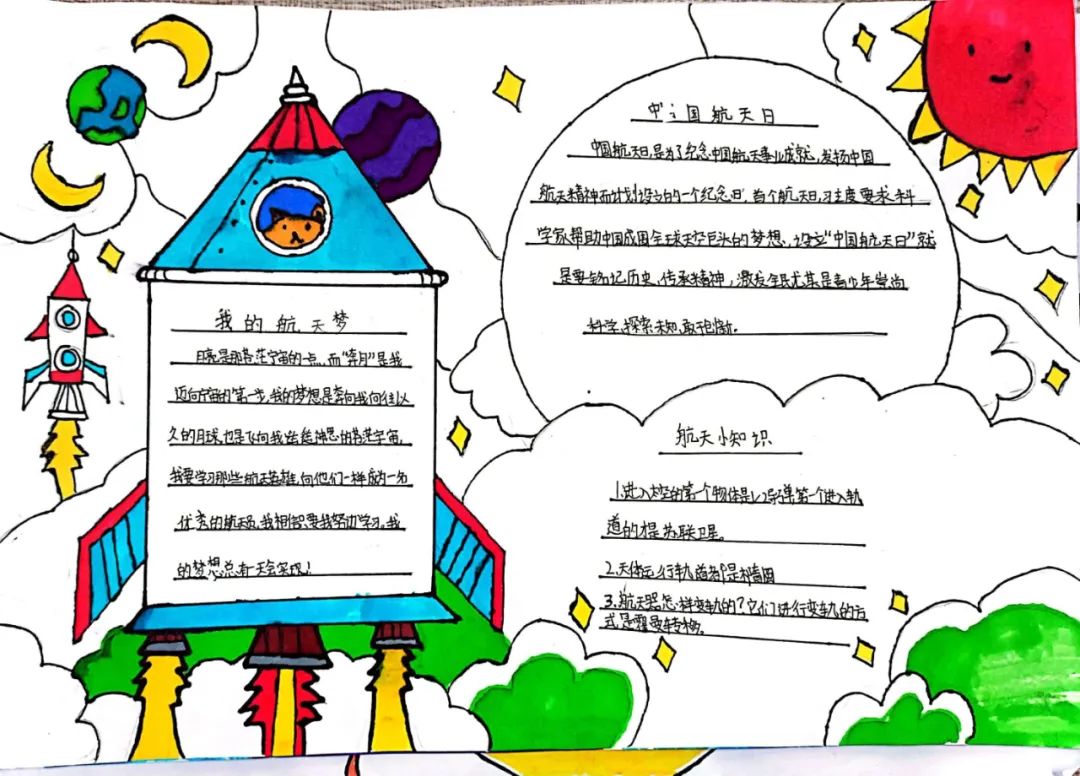 我的航天梦
月亮是那苍茫宇宙的一点,而"奔月"是我
迈向宇宙的第一步,我的梦想是奔向我向往以
久的月球,也是飞向我出神思的苍茫宇宙,
我要学习那些航天英雄,向他们一样成为一名
优秀的航天员,我相信只要我努力学习,我
的梦想总有一天会实现!
中国航天日
中国航天日,是为了纪念中国航天事业成就,发扬中国
航天精神而计划设立的一个纪念日,首个航天日,习主度要求科
学家帮助中国成用全球天空巨头的梦想,设立"中国航天日"就
是要铭记历史、传承精神,激发全民尤其是青少年崇尚
科学、探索未知、敢于创新.
航天小知识
1.进入太空的第一个物体是V2导弹,第一个进入轨
道的才是苏联卫星。
2.天体运行轨道都是椭圆
3.航天器怎样变轨的?它们进行变轨的方
式是霍曼转移。